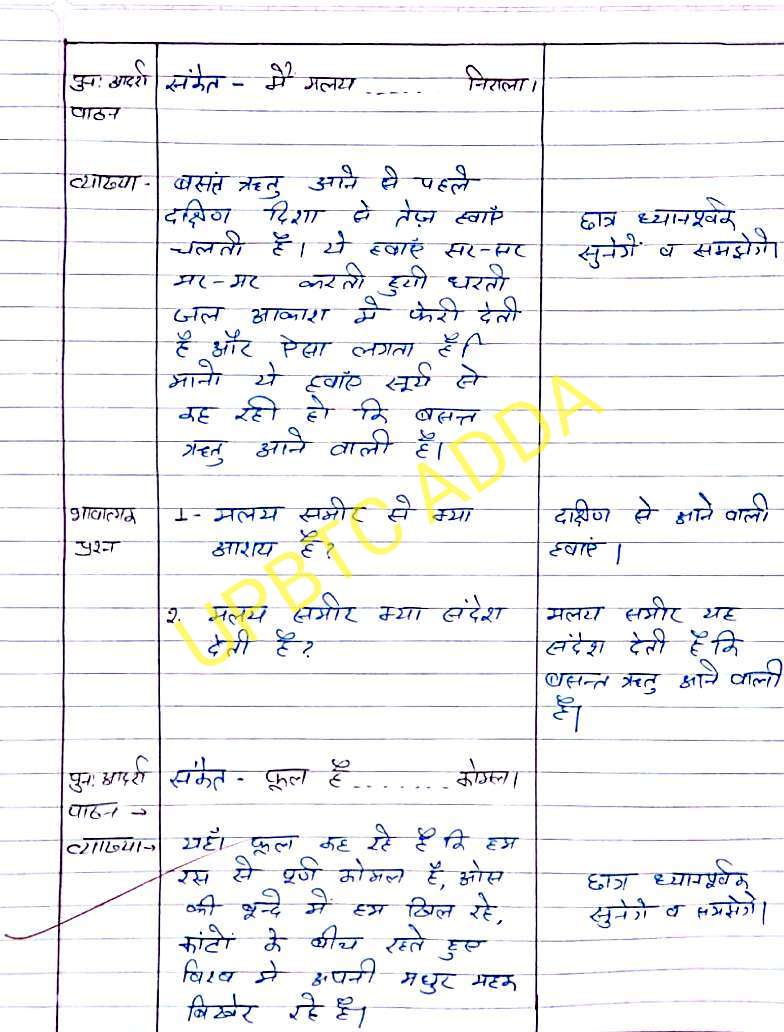 पुन: आदर्श संकेत - मैं मलय ..... निराला।
पाठन
व्याख्या - बसंत ऋतु आने से पहले
दक्षिण दिशा से तेज़ हवाएँ
चलती हैं। ये हवाएँ सर-सर
मर-मर करती हुयी धरती
जल आकाश में फेरी देती
है और ऐसा लगता है।
मानो ये हवाएं सूर्य से
कह रही हो कि बसन्त
ऋतु आने वाली है।
छात्र ध्यानपूर्वक
सुनेगें व समझेगे।
भावात्मक
प्रश्न
1- मलय समीर से क्या
आशय है?
दक्षिण से आने वाली
हवाएं।
2. मलय समीर क्या संदेश
देती है?
मलय समीर यह
संदेश देती है कि
बसन्त ऋतु आने वाली
है।
पुन: आदर्श
पाठन →
संकेत - फूल हैं ........ कोमल।
व्याख्या → यहाँ फूल कह रहे है कि हम
रस से पूर्ण कोमल है, ओस
की बून्दे में हम खिल रहे,
कांटों के बीच रहते हुए
विश्व मे अपनी मधुर महक
बिखेर रहे हैं।
छात्र ध्यानपूर्वक
सुनेगे व समझेगे।
UPBTC ADDA